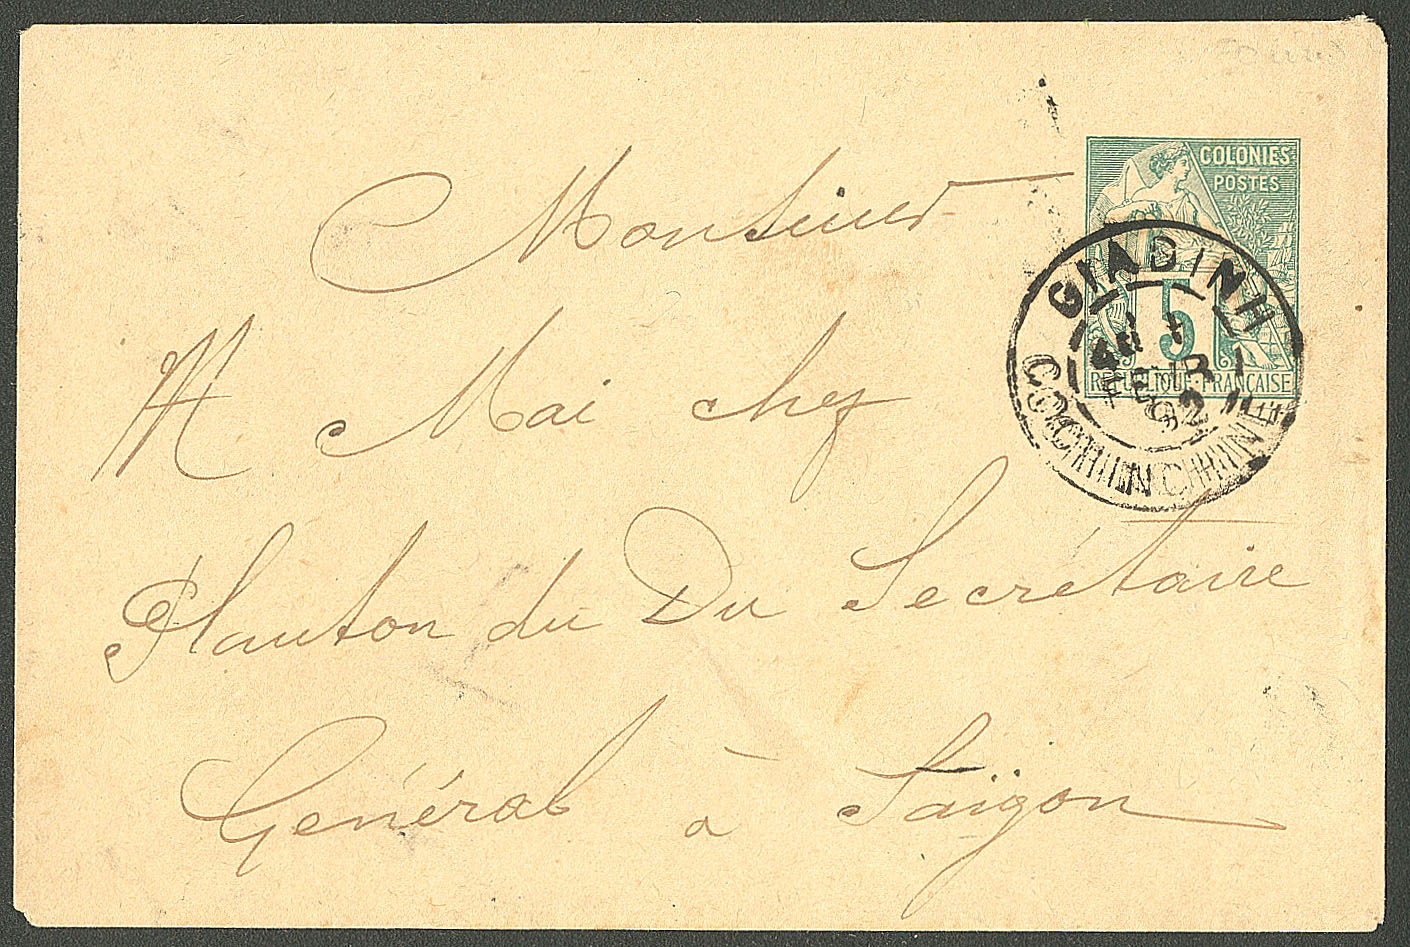 COLONIES
POSTES
5
REPUBLIQUE FRANCAISE
GIADINH
FEVR
92
COCHINCHINE
Monsieur
M Mai chez
Planton du Du Secrétaire
Général à Saïgon